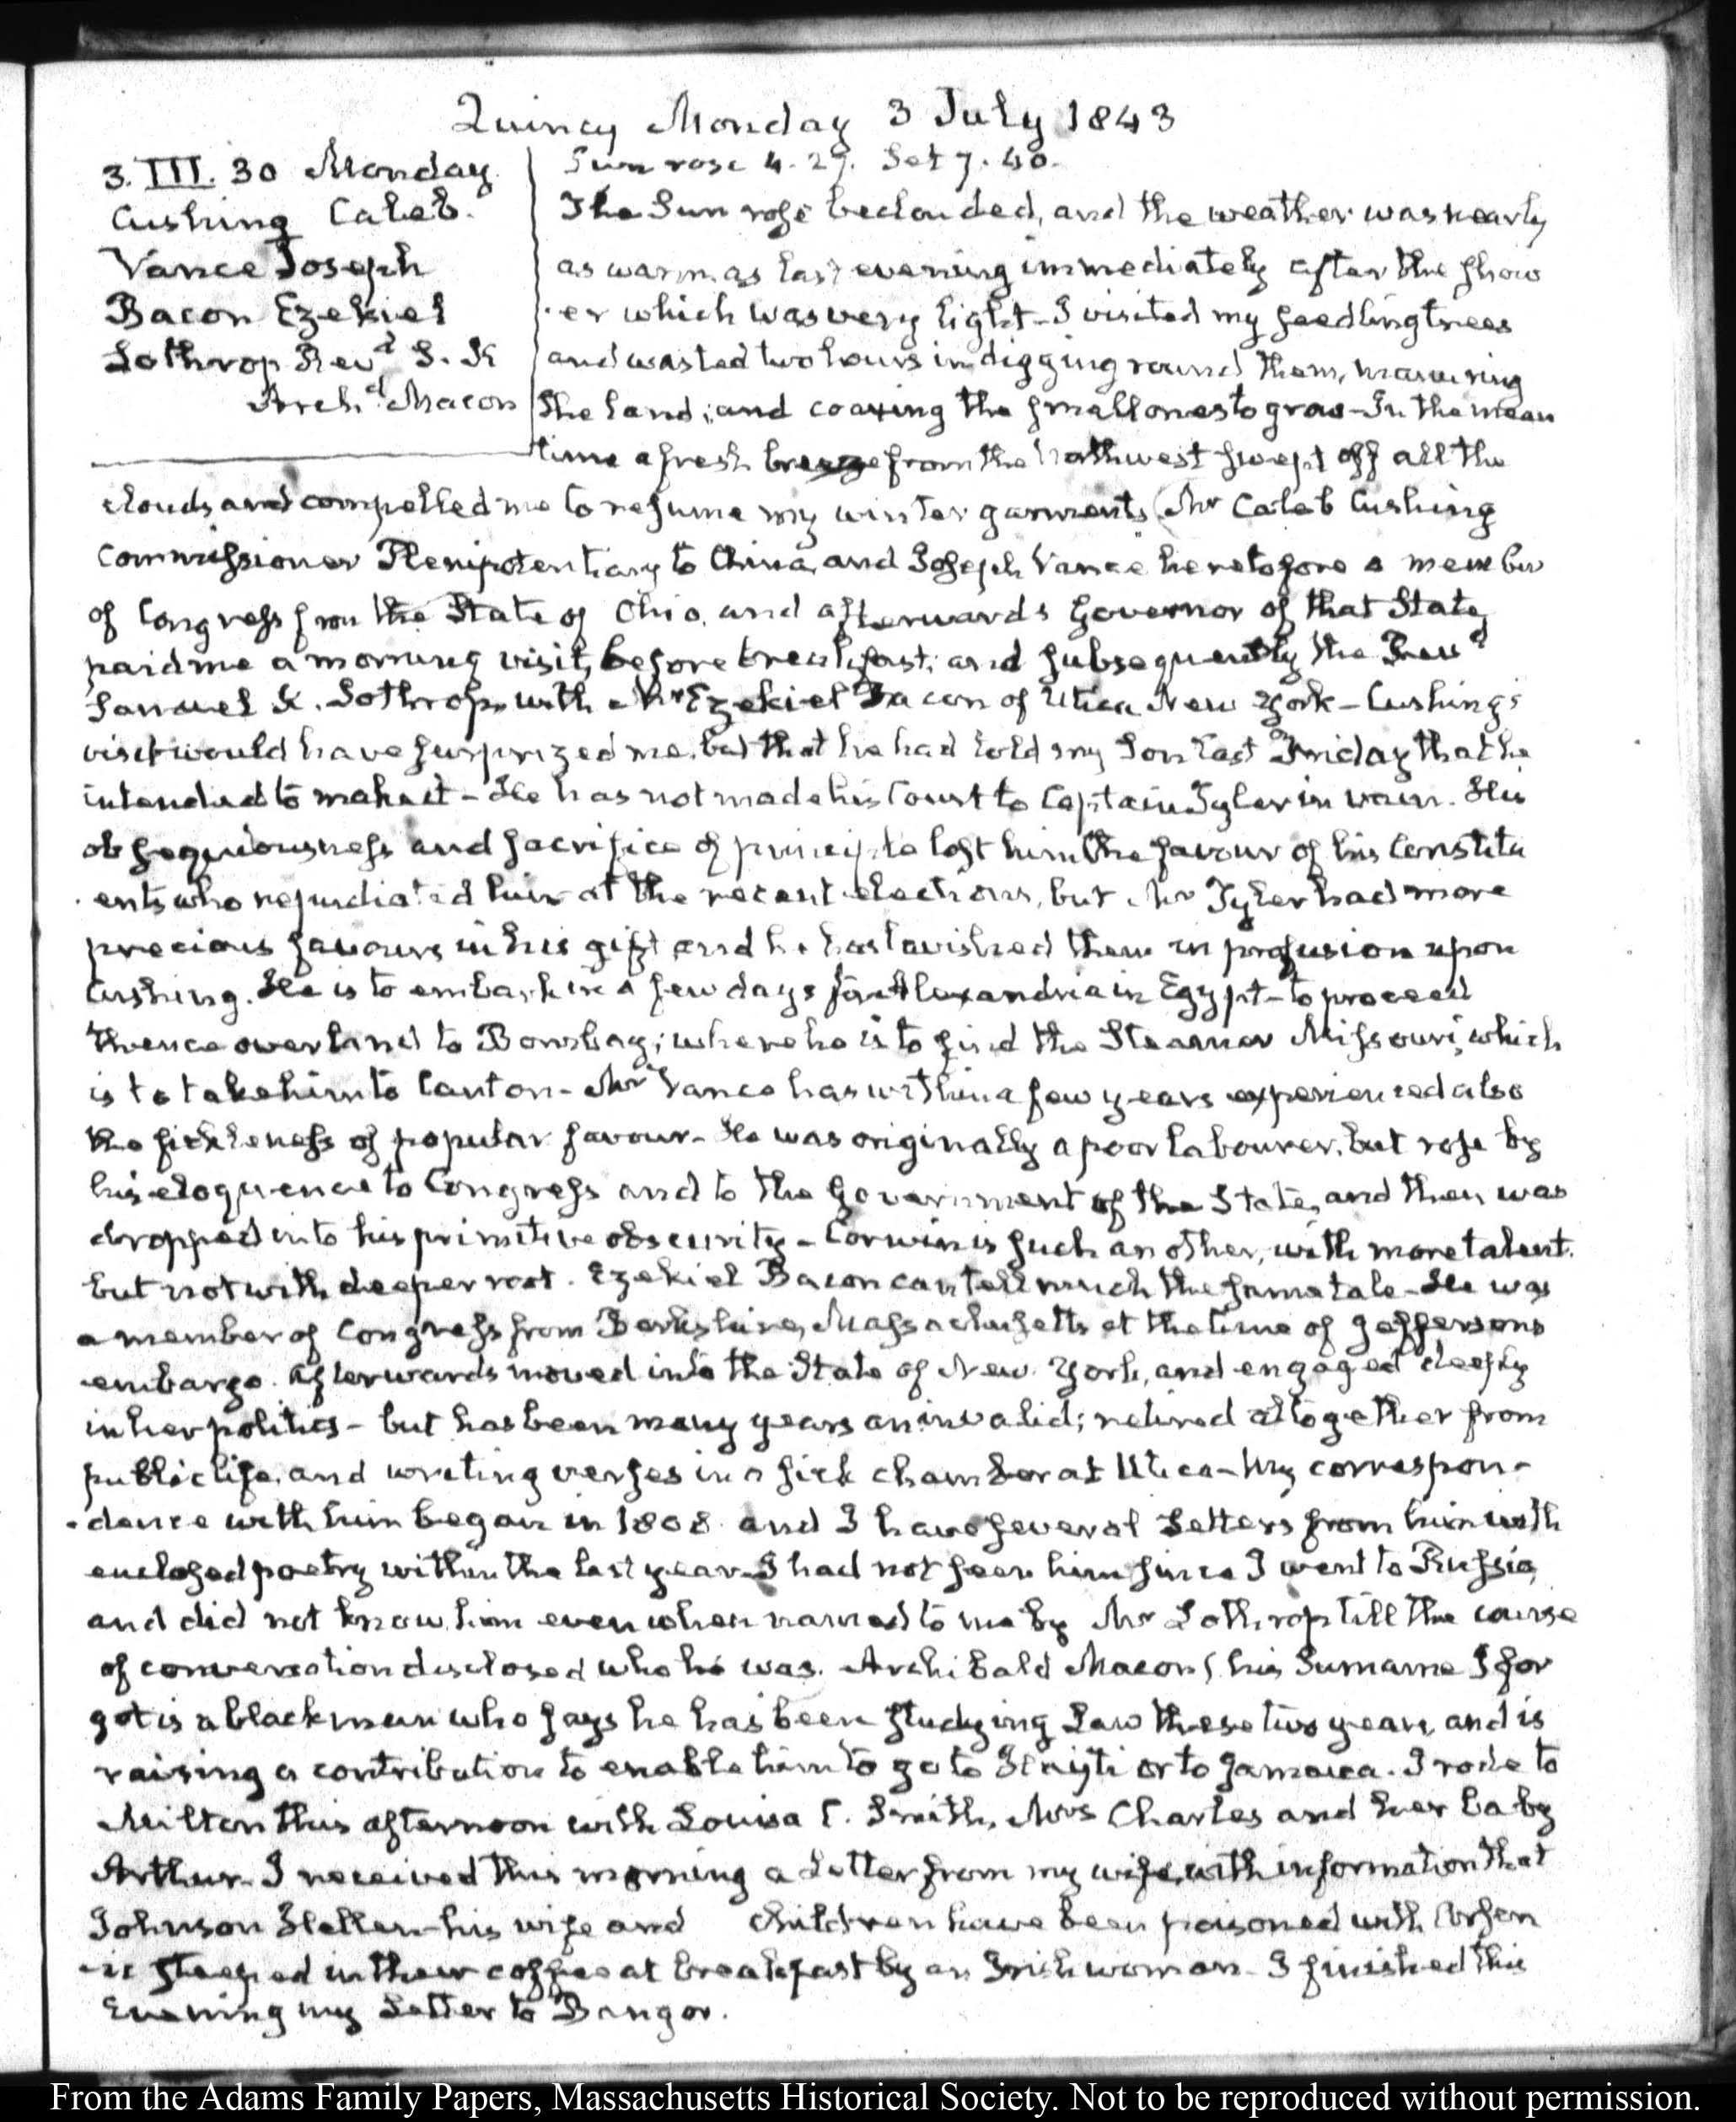 Quincy Monday 3 July 1843
3. III. 30 Monday
Cushing Caleb.
Vance Joseph
Bacon Ezekiel
Lothrop Revd S. K
Archd Macon
Sun rose 4.29. Set 7.40.
The Sun rose beclouded, and the weather was nearly
as warm as last evening immediately after the show
er which was very light - I visited my seedling trees
and wasted two hours in digging round them, manuring
the land; and coaxing the small ones to grow - In the mean
time a fresh breeze from the northwest swept off all the
clouds and compelled me to resume my winter garments. Mr Caleb Cushing
Commissioner Plenipotentiary to China, and Joseph Vance heretofore a member
of Congress from the State of Ohio, and afterwards Governor of that State,
paid me a morning visit, before breakfast; and subsequently the Revd
Samuel K. Lothrop, with Mr Ezekiel Bacon of Utica New York - Cushing's
visit would have surprized me, but that he had told my Son last Friday that he
intended to make it - He has not made his Court to Captain Tyler in vain. His
obsequiousness and sacrifice of principle lost him the favour of his Constitu
ents who repudiated him at the recent elections, but Mr Tyler had more
precious favours in his gift and he has lavished them in profusion upon
Cushing. He is to embark in a few days for Alexandria in Egypt - to proceed
thence over land to Bombay; where he is to find the Steamer Missouri, which
is to take him to Canton - Mr Vance has within a few years experienced also
the fickleness of popular favour - He was originally a poor labourer, but rose by
his eloquence to Congress and to the Government of the State, and then was
dropped into his primitive obscurity - Corwin is such another, with more talent,
but not with deeper root. Ezekiel Bacon can tell much the same tale - He was
a member of Congress from Berkshire, Massachusetts at the time of Jeffersons
embargo. Afterwards moved into the State of New York, and engaged deeply
in her politics - but has been many years an invalid; retired altogether from
public life, and writing verses in a sick chamber at Utica - My correspon-
dence with him began in 1808 and I have several Letters from him with
enclosed poetry within the last year - I had not seen him since I went to Russia,
and did not know him even when named to me by Mr Lothrop till the course
of conversation disclosed who he was. Archibald Macon (his Surname I for
got is a black man who says he has been studying Law these two years, and is
raising a contribution to enable him to go to Hayti or to Jamaica. I rode to
Milton this afternoon with Louisa C. Smith, Mrs Charles and her baby
Arthur - I received this morning a Letter from my wife, with information that
Johnson Hellen - his wife and children have been poisoned with Arsen
ic steeped in their coffee at breakfast by an Irish woman - I finished this
Evening my Letter to Bangor.
From the Adams Family Papers, Massachusetts Historical Society. Not to be reproduced without permission.